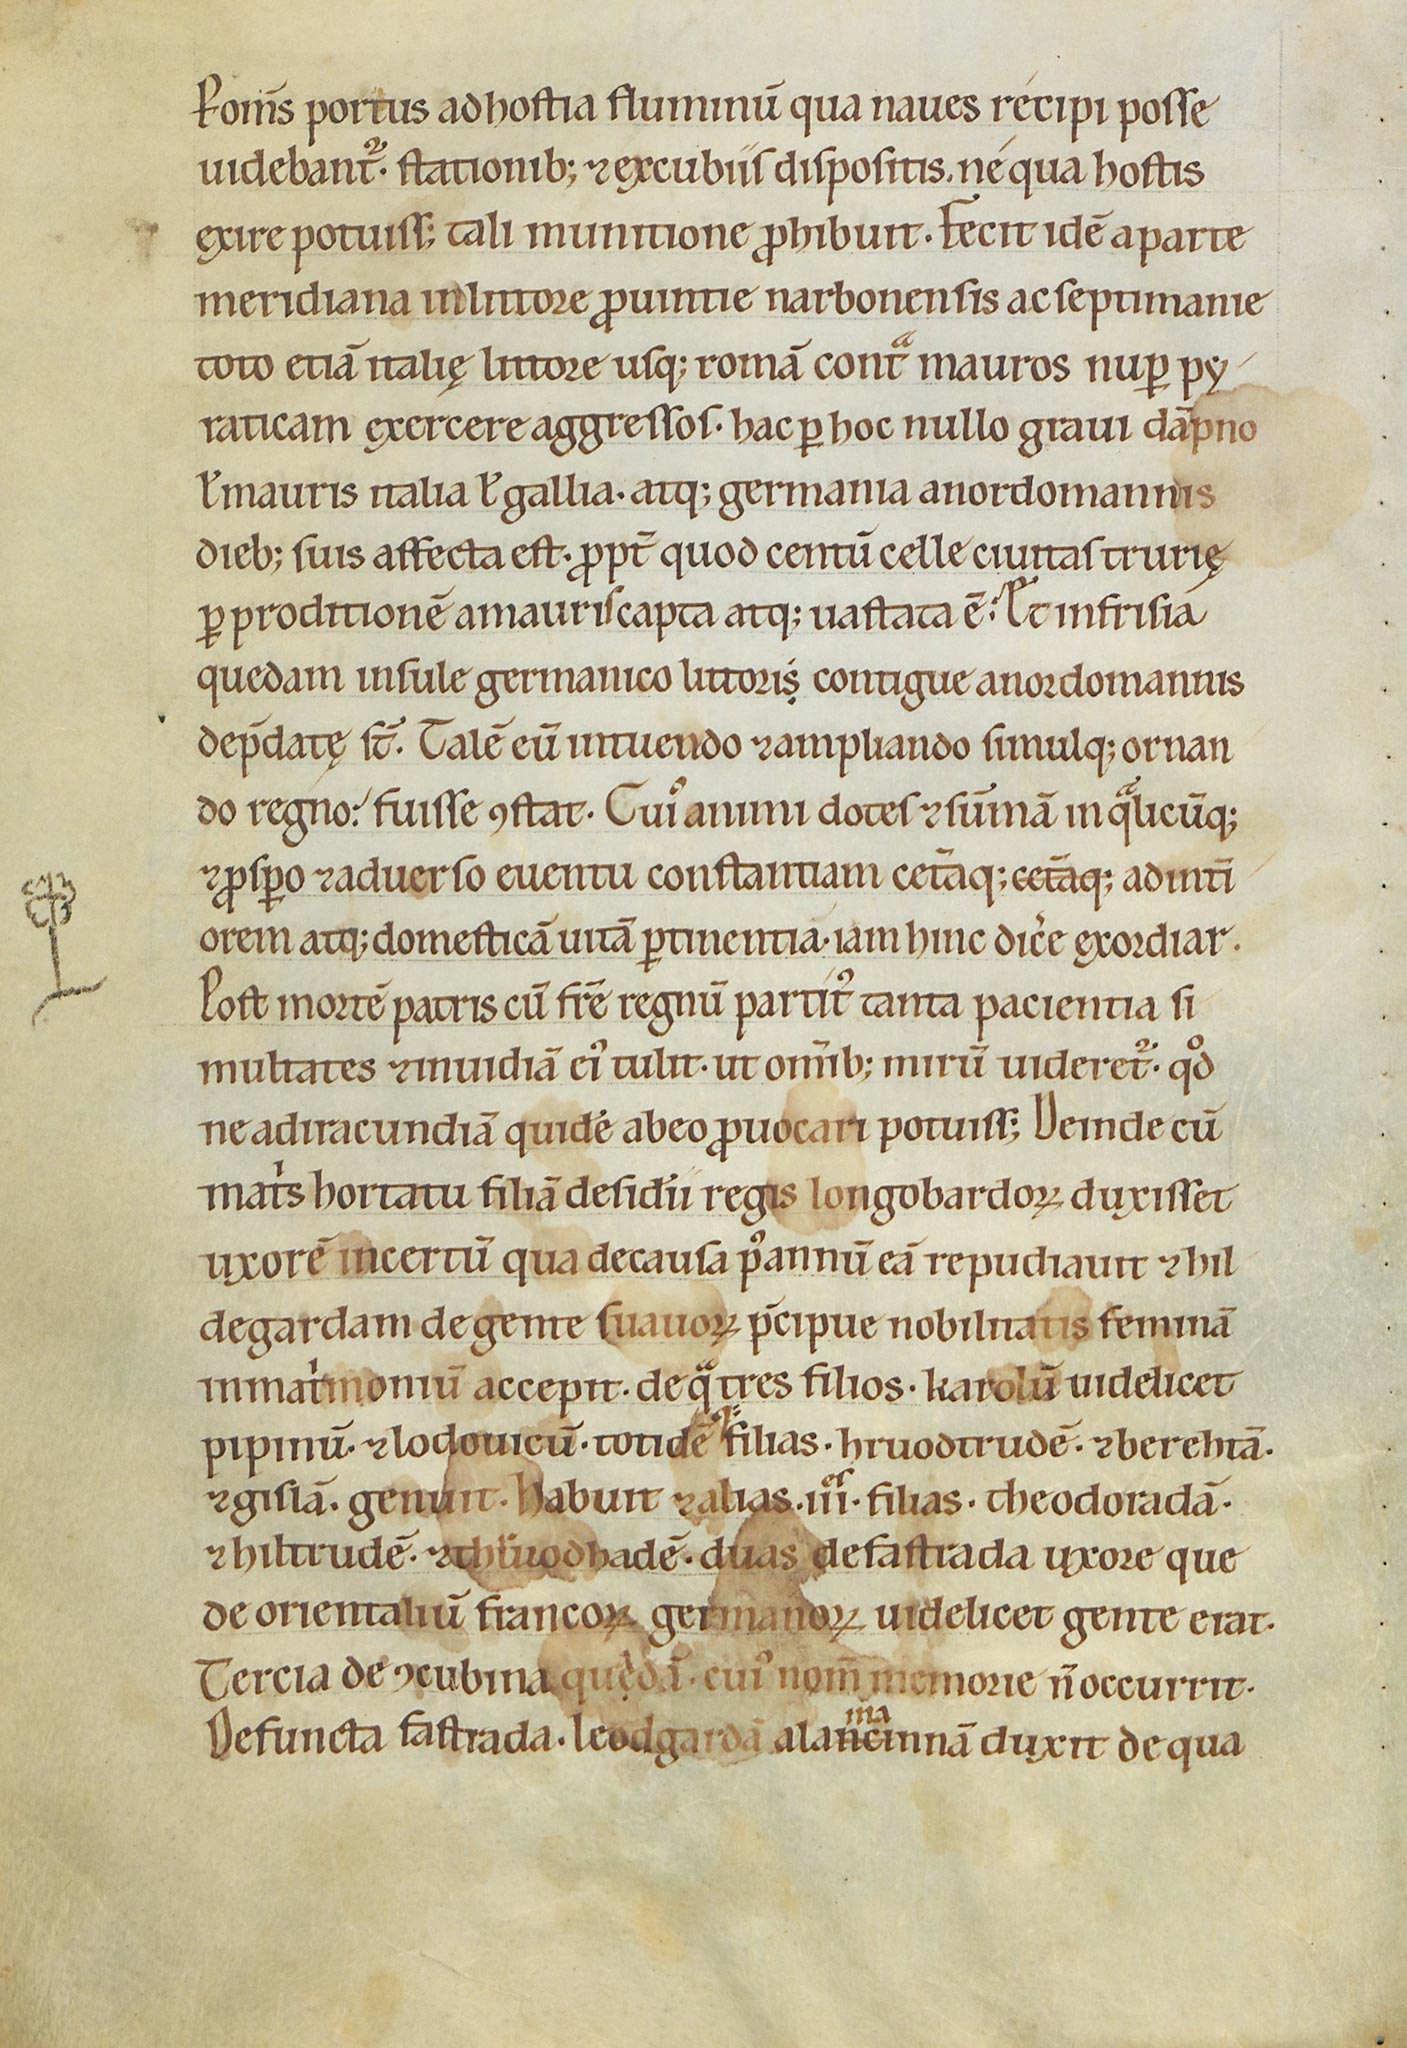 P omīs portus ad hostia fluminū qua naues recipi posse
uidebant᷑. stationib; ⁊ excubiis dispositis. ne qua hostis
exire potuiss; tali munitione ꝓhibuit. Fecit idē a parte
meridiana in littore ꝓuintie narbonensis ac septimanie
toto etiā italię littore usq; romā contᵃ mauros nuꝑ py
raticam exercere aggressos. hac ꝑ hoc nullo graui dāpno
ƚ mauris italia ƚ gallia. atq; germania a nordomannis
dieb; suis affecta est. ꝓpt̄ quod centū celle ciuitas trurię
ꝑ proditionē a mauris capta atq; uastata ē. Et in frisia
quedam insule germanico littoris contigue a nordomannis
dep̄datę st̄. Talē eū in tuendo ⁊ ampliando simulq; ornan
do regno. fuisse ꝯstat. Cuiꝰ animi dotes ⁊ sum̄ā in qᵃlicūq;
⁊ ꝓsꝑo ⁊ aduerso euentu constantiam cet̄aq; cet̄aq; ad inti
orem atq; domesticā uitā ꝑtinentia. iam hinc dic̄e exordiar.
Post mortē patris cū fr̄e regnū partitꝰ tanta pacientia si
multates ⁊ inuidiā eiꝰ tulit. ut omīb; mirū uideret᷑. qd̊
ne ad iracundiā quidē ab eo ꝓuocari potuiss; Deinde cū
matⁱs hortatu filiā desid̄ii regis longobardoꝝ duxisset
uxorē incertū qua de causa pꝰ annū eā repudiauit ⁊ hil
degardam de gente suauoꝝ p̄cipue nobilitatis feminā
in matⁱmoniū accepit. de qᵃ tres filios. karolū uidelicet
pipinū. ⁊ lodouicū. totidē filias. hruodtrudē. ⁊ berehtā.
⁊ gislā. genuit. habuit ⁊ alias .iii.ᵉˢ filias. theodoradā.
⁊ hiltrudē. ⁊ hruodhadē. duas de fastrada uxore que
de orientaliū francoꝝ germanoꝝ uidelicet gente erat.
Tercia de ꝯcubina quędā. cuiꝰ nom̄ memorie n̄ occurrit.
Defuncta fastrada. leodgardā alancinnā duxit de qua
ma